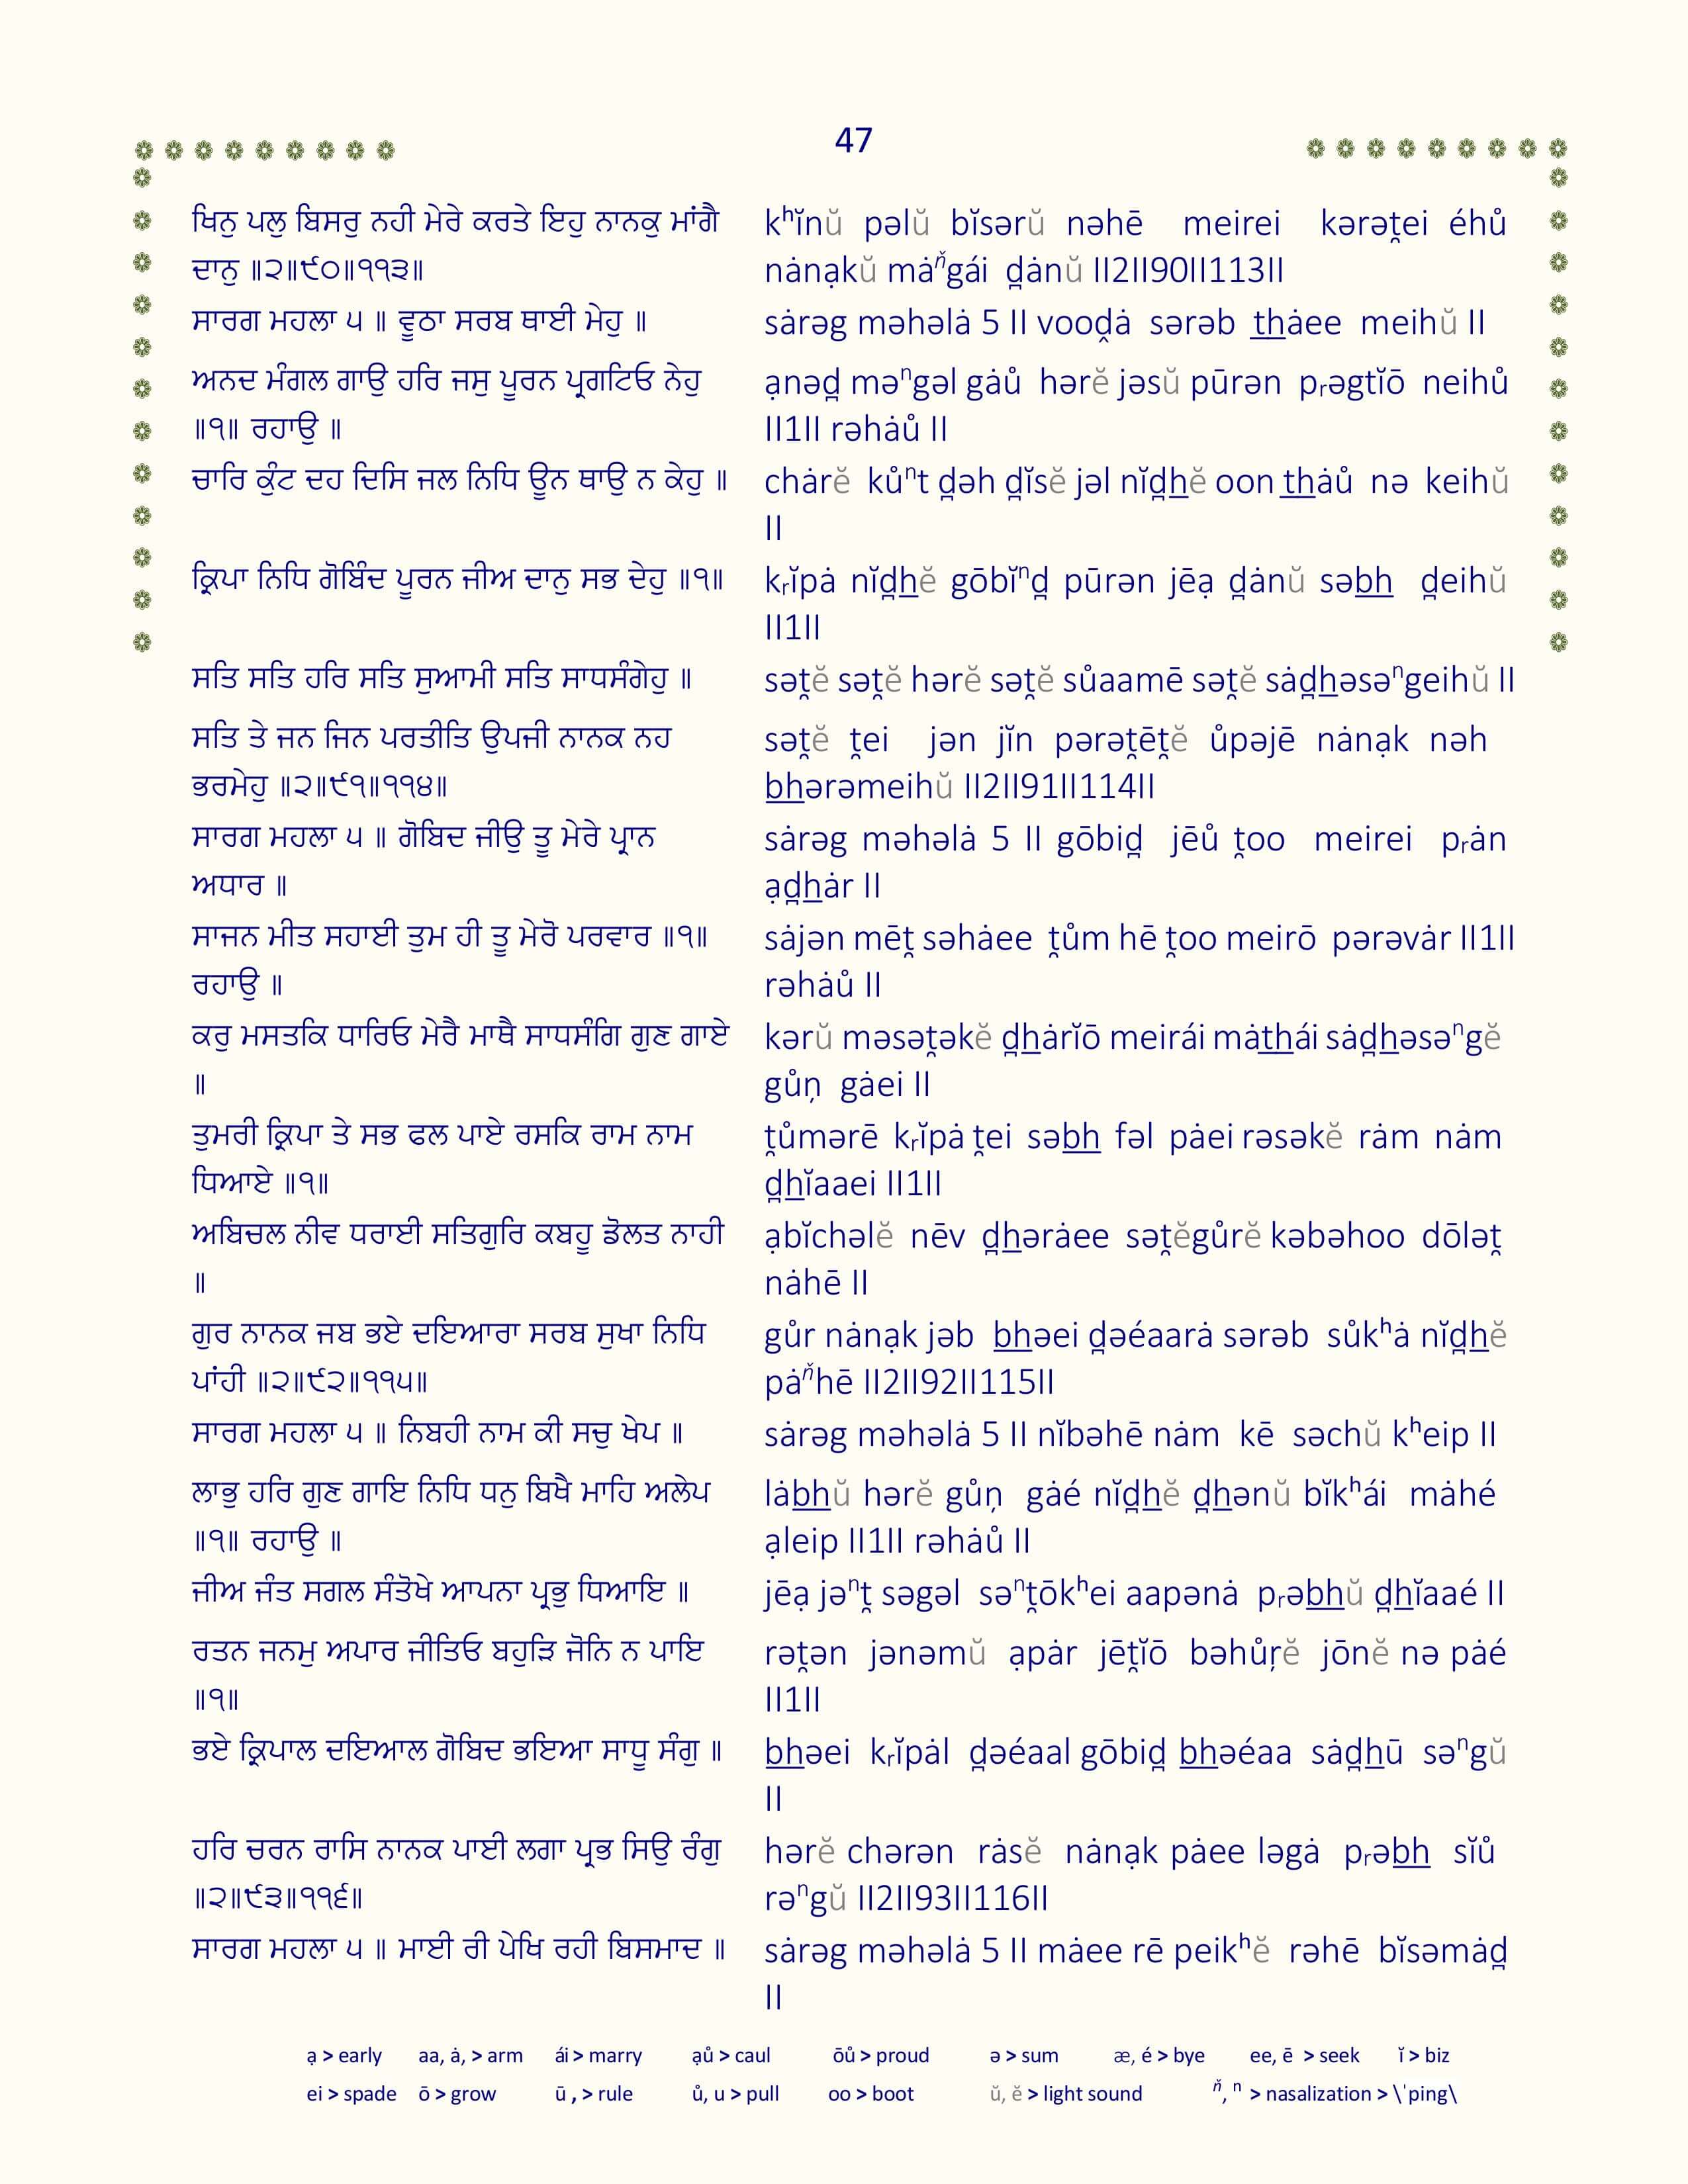 47
ਖਿਨੁ ਪਲੁ ਬਿਸਰੁ ਨਹੀ ਮੇਰੇ ਕਰਤੇ ਇਹੁ ਨਾਨਕੁ ਮਾਂਗੈ
ਦਾਨੁ ॥੨॥੯੦॥੧੧੩॥
kʰĭnŭ pəlŭ bĭsərŭ nəhē meirei kərət̯ei éhů
nȧnạkŭ mȧᵑ̆gái d̯ȧnŭ II2II90II113II
ਸਾਰਗ ਮਹਲਾ ੫ ॥ ਵੂਠਾ ਸਰਬ ਥਾਈ ਮੇਹੁ ॥
sȧrəg məhəlȧ 5 II vood̬ȧ sərəb t̲h̲ȧee meihŭ II
ਅਨਦ ਮੰਗਲ ਗਾਉ ਹਰਿ ਜਸੁ ਪੂਰਨ ਪ੍ਰਗਟਿਓ ਨੇਹੁ
॥੧॥ ਰਹਾਉ ॥
ạnəd̯ məⁿgəl gȧů hərĕ jəsŭ pūrən pᵣəgtĭō neihů
II1II rəhȧů II
ਚਾਰਿ ਕੁੰਟ ਦਹ ਦਿਸਿ ਜਲ ਨਿਧਿ ਊਨ ਥਾਉ ਨ ਕੇਹੁ ॥
chȧrĕ kůⁿt d̯əh d̯ĭsĕ jəl nĭd̯h̲ĕ oon t̲h̲ȧů nə keihŭ
II
ਕ੍ਰਿਪਾ ਨਿਧਿ ਗੋਬਿੰਦ ਪੂਰਨ ਜੀਅ ਦਾਨੁ ਸਭ ਦੇਹੁ ॥੧॥
kᵣĭpȧ nĭd̯h̲ĕ gōbĭⁿd̯ pūrən jēạ d̯ȧnŭ səb̲h̲ d̯eihŭ
II1II
ਸਤਿ ਸਤਿ ਹਰਿ ਸਤਿ ਸੁਆਮੀ ਸਤਿ ਸਾਧਸੰਗੇਹੁ ॥
sət̯ĕ sət̯ĕ hərĕ sət̯ĕ sůaamē sət̯ĕ sȧd̯h̲əsəⁿgeihŭ II
ਸਤਿ ਤੇ ਜਨ ਜਿਨ ਪਰਤੀਤਿ ਉਪਜੀ ਨਾਨਕ ਨਹ
ਭਰਮੇਹੁ ॥੨॥੯੧॥੧੧੪॥
sət̯ĕ t̯ei jən jĭn pərət̯ēt̯ĕ ůpəjē nȧnạk nəh
b̲h̲ərəmeihŭ II2II91II114II
ਸਾਰਗ ਮਹਲਾ ੫ ॥ ਗੋਬਿਦ ਜੀਉ ਤੂ ਮੇਰੇ ਪ੍ਰਾਨ
ਅਧਾਰ ॥
sȧrəg məhəlȧ 5 II gōbid̯ jēů t̯oo meirei pᵣȧn
ạd̯h̲ȧr II
ਸਾਜਨ ਮੀਤ ਸਹਾਈ ਤੁਮ ਹੀ ਤੂ ਮੇਰੋ ਪਰਵਾਰ ॥੧॥
ਰਹਾਉ ॥
sȧjən mēt̯ səhȧee t̯ům hē t̯oo meirō pərəvȧr II1II
rəhȧů II
ਕਰੁ ਮਸਤਕਿ ਧਾਰਿਓ ਮੇਰੈ ਮਾਥੈ ਸਾਧਸੰਗਿ ਗੁਣ ਗਾਏ
॥
kərŭ məsət̯əkĕ d̯h̲ȧrĭō meirái mȧt̲h̲ái sȧd̯h̲əsəⁿgĕ
gůṇ gȧei II
ਤੁਮਰੀ ਕ੍ਰਿਪਾ ਤੇ ਸਭ ਫਲ ਪਾਏ ਰਸਕਿ ਰਾਮ ਨਾਮ
ਧਿਆਏ ॥੧॥
t̯ůmərē kᵣĭpȧ t̯ei səb̲h̲ fəl pȧei rəsəkĕ rȧm nȧm
d̯h̲ĭaaei II1II
ਅਬਿਚਲ ਨੀਵ ਧਰਾਈ ਸਤਿਗੁਰਿ ਕਬਹੂ ਡੋਲਤ ਨਾਹੀ
॥
ạbĭchəlĕ nēv d̯h̲ərȧee sət̯ĕgůrĕ kəbəhoo dōlət̯
nȧhē II
ਗੁਰ ਨਾਨਕ ਜਬ ਭਏ ਦਇਆਰਾ ਸਰਬ ਸੁਖਾ ਨਿਧਿ
ਪਾਂਹੀ ॥੨॥੯੨॥੧੧੫॥
gůr nȧnạk jəb b̲h̲əei d̯əéaarȧ sərəb sůkʰȧ nĭd̯h̲ĕ
pȧᵑ̆hē II2II92II115II
ਸਾਰਗ ਮਹਲਾ ੫ ॥ ਨਿਬਹੀ ਨਾਮ ਕੀ ਸਚੁ ਖੇਪ ॥
sȧrəg məhəlȧ 5 II nĭbəhē nȧm kē səchŭ kʰeip II
ਲਾਭੁ ਹਰਿ ਗੁਣ ਗਾਇ ਨਿਧਿ ਧਨੁ ਬਿਖੈ ਮਾਹਿ ਅਲੇਪ
॥੧॥ ਰਹਾਉ ॥
lȧb̲h̲ŭ hərĕ gůṇ gȧé nĭd̯h̲ĕ d̯h̲ənŭ bĭkʰái mȧhé
ạleip II1II rəhȧů II
ਜੀਅ ਜੰਤ ਸਗਲ ਸੰਤੋਖੇ ਆਪਨਾ ਪ੍ਰਭੁ ਧਿਆਇ ॥
jēạ jəⁿt̯ səgəl səⁿt̯ōkʰei aapənȧ pᵣəb̲h̲ŭ d̯h̲ĭaaé II
ਰਤਨ ਜਨਮੁ ਅਪਾਰ ਜੀਤਿਓ ਬਹੁੜਿ ਜੋਨਿ ਨ ਪਾਇ
॥੧॥
rət̯ən jənəmŭ ạpȧr jēt̯ĭō bəhůŗĕ jōnĕ nə pȧé
II1II
ਭਏ ਕ੍ਰਿਪਾਲ ਦਇਆਲ ਗੋਬਿਦ ਭਇਆ ਸਾਧੂ ਸੰਗੁ ॥
b̲h̲əei kᵣĭpȧl d̯əéaal gōbid̯ b̲h̲əéaa sȧd̯h̲ū səⁿgŭ
II
ਹਰਿ ਚਰਨ ਰਾਸਿ ਨਾਨਕ ਪਾਈ ਲਗਾ ਪ੍ਰਭ ਸਿਉ ਰੰਗੁ
॥੨॥੯੩॥੧੧੬॥
hərĕ chərən rȧsĕ nȧnạk pȧee ləgȧ pᵣəb̲h̲ sĭů
rəⁿgŭ II2II93II116II
ਸਾਰਗ ਮਹਲਾ ੫ ॥ ਮਾਈ ਰੀ ਪੇਖਿ ਰਹੀ ਬਿਸਮਾਦ ॥
sȧrəg məhəlȧ 5 II mȧee rē peikʰĕ rəhē bĭsəmȧd̯
II
ạ > early aa, ȧ, > arm ái > marry ạů > caul ōů > proud ə > sum æ, é > bye ee, ē > seek ĭ > biz
ei > spade ō > grow ū , > rule ů, u > pull oo > boot ŭ, ĕ > light sound ᵑ̆, ⁿ > nasalization > \ˈping\